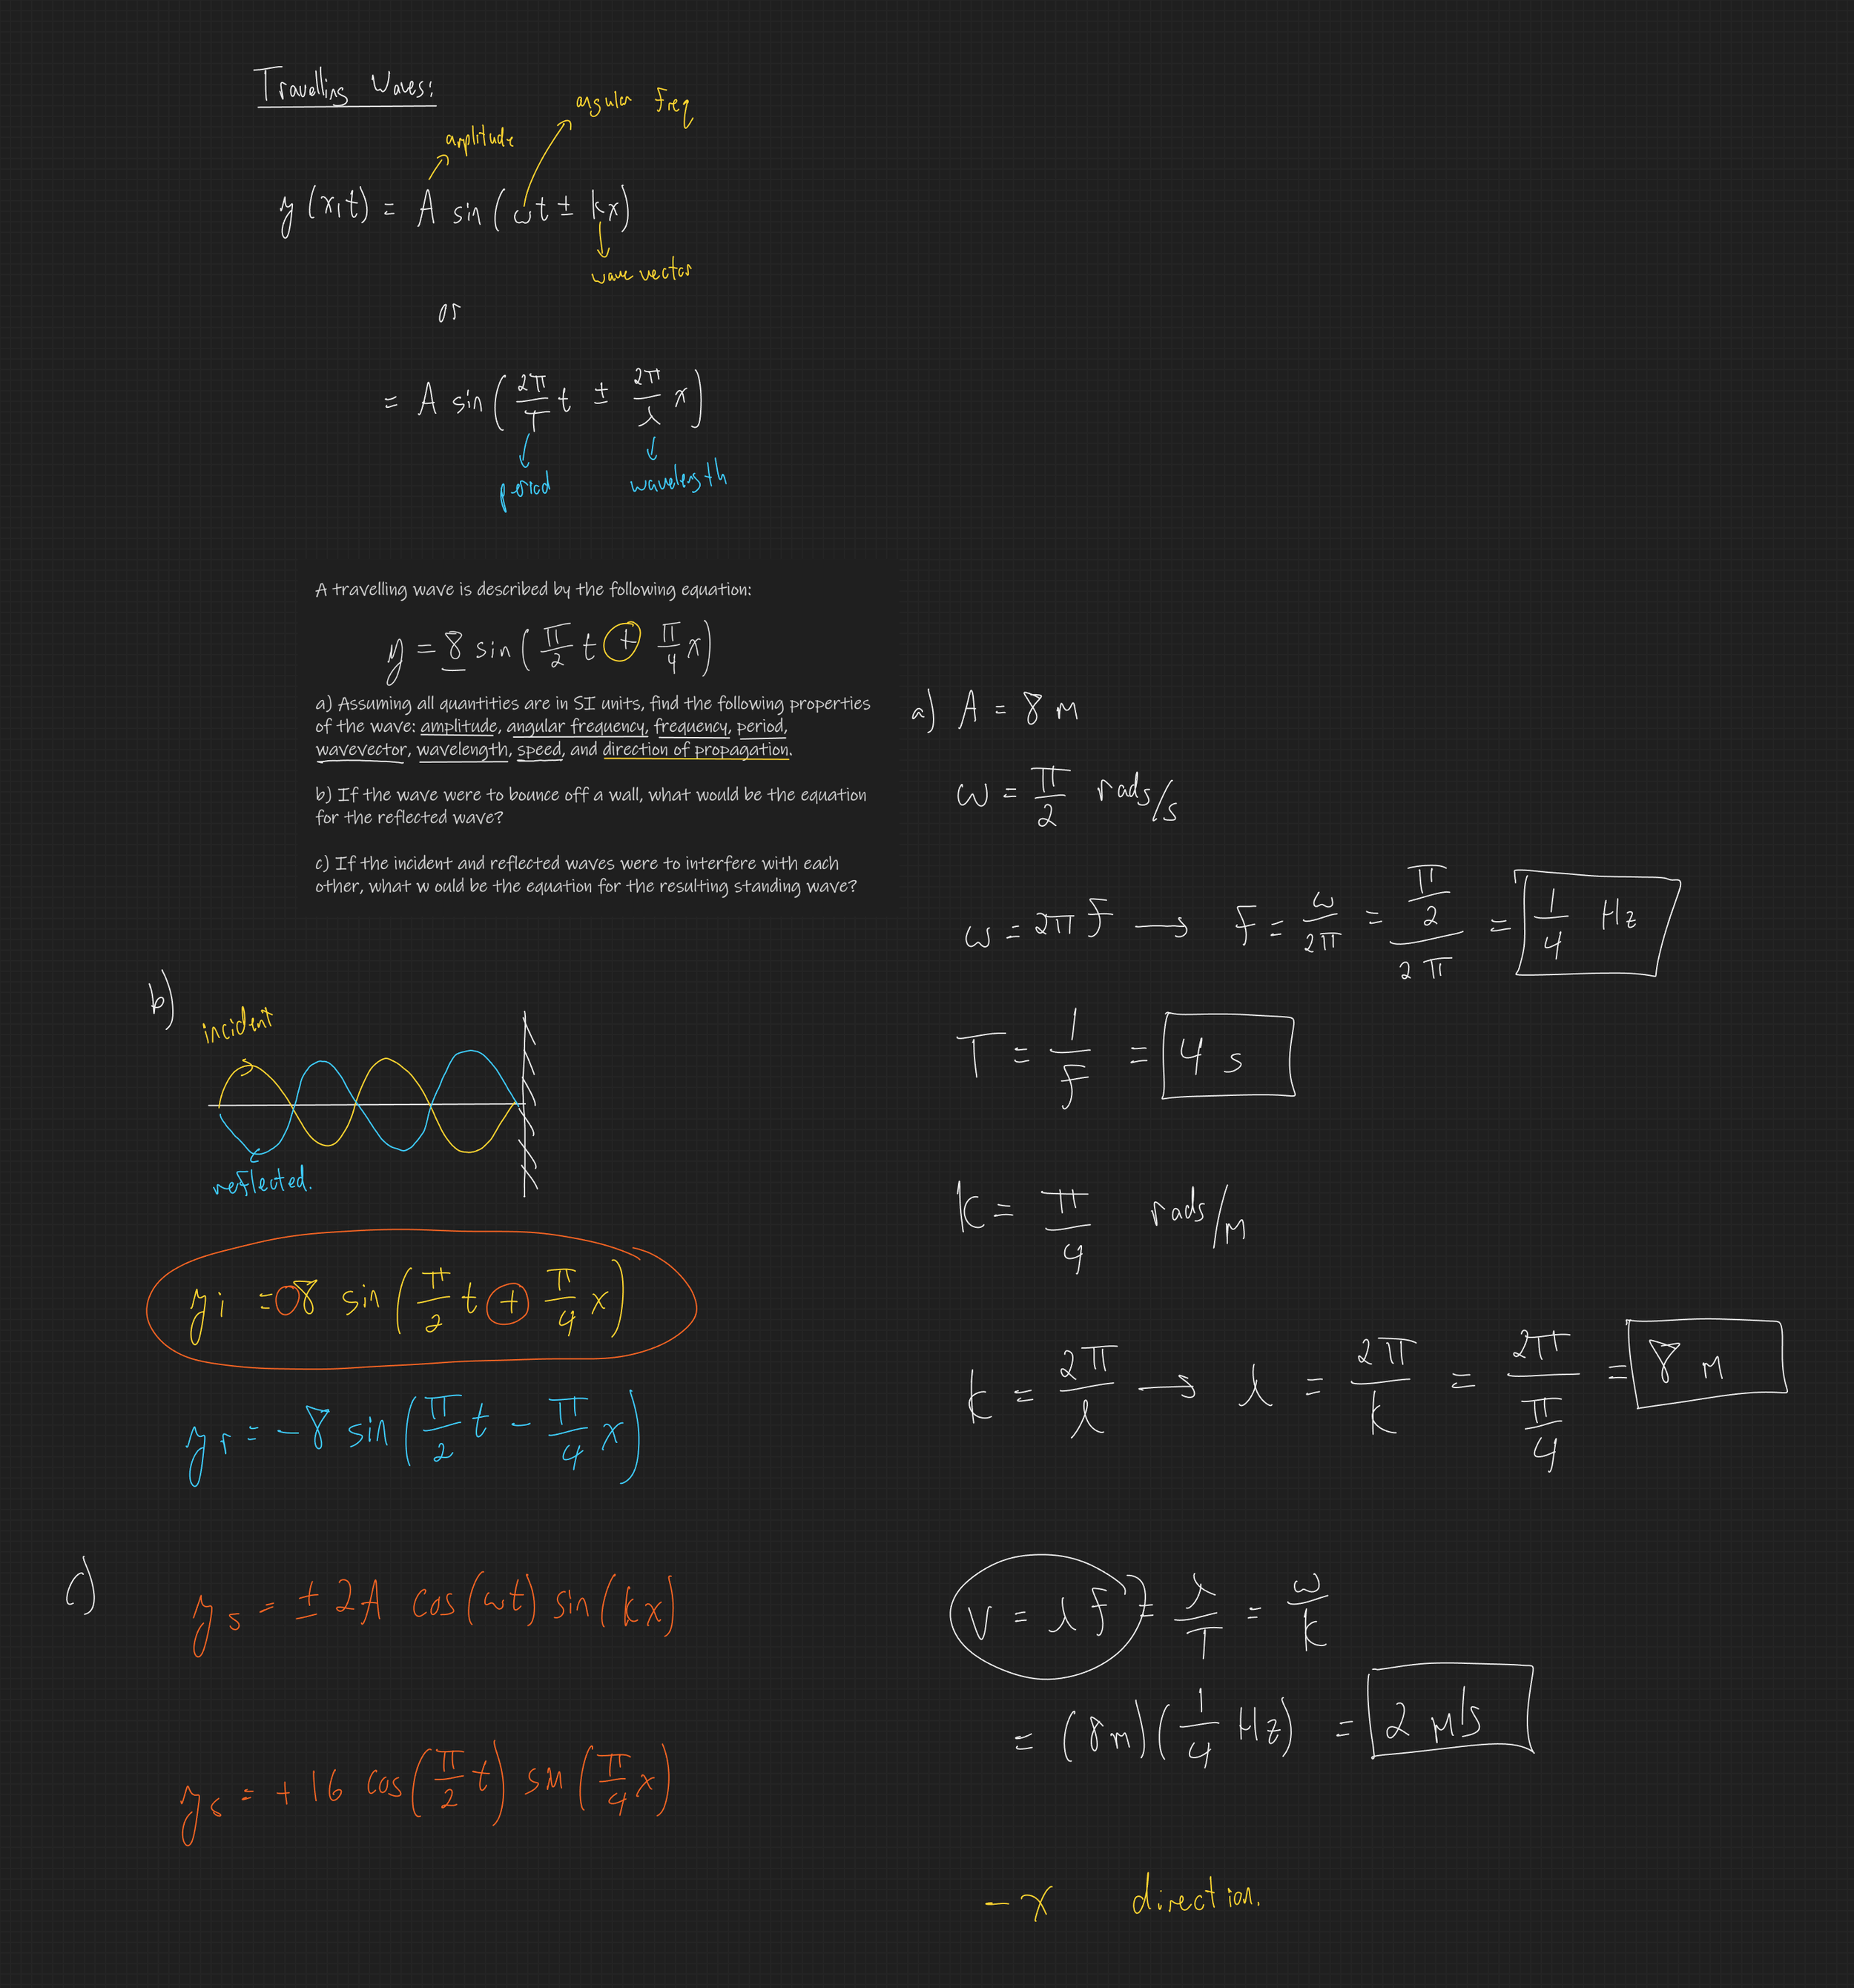 Travelling Waves:
amplitude
angular freq
y(x,t) = A sin(ωt ± kx)
wave vector
or
= A sin(2π/T t ± 2π/λ x)
period
wavelength
A travelling wave is described by the following equation:
y = 8 sin(π/2 t + π/4 x)
a) Assuming all quantities are in SI units, find the following properties
of the wave: amplitude, angular frequency, frequency, period,
wavevector, wavelength, speed, and direction of propagation.
b) If the wave were to bounce off a wall, what would be the equation
for the reflected wave?
c) If the incident and reflected waves were to interfere with each
other, what w ould be the equation for the resulting standing wave?
a) A = 8 m
ω = π/2 rads/s
ω = 2πf → f = ω/2π = π/2 / 2π = 1/4 Hz
T = 1/f = 4 s
k = π/4 rads/m
k = 2π/λ → λ = 2π/k = 2π / π/4 = 8 m
v = λf = λ/T = ω/k
= (8m)(1/4 Hz) = 2 m/s
-x direction.
b)
incident
reflected.
yi = 8 sin(π/2 t + π/4 x)
yr = -8 sin(π/2 t - π/4 x)
c) ys = ± 2A cos(ωt) sin(kx)
ys = +16 cos(π/2 t) sin(π/4 x)